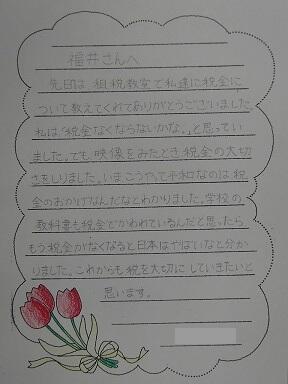 福井さんへ
先日は租税教室で私達に税金に
ついて教えてくれてありがとうございました。
私は「税金なくならないかな。」と思ってい
ました。でも、映像をみたとき税金の大切
さをしりました。いまこうやって平和なのは税
金のおかげなんだなとわかりました。学校の
教科書も税金でかわれているんだと思ったら
もう税金がなくなると日本はやばいなと分か
りました。これからも税を大切にしていきたいと
思います。